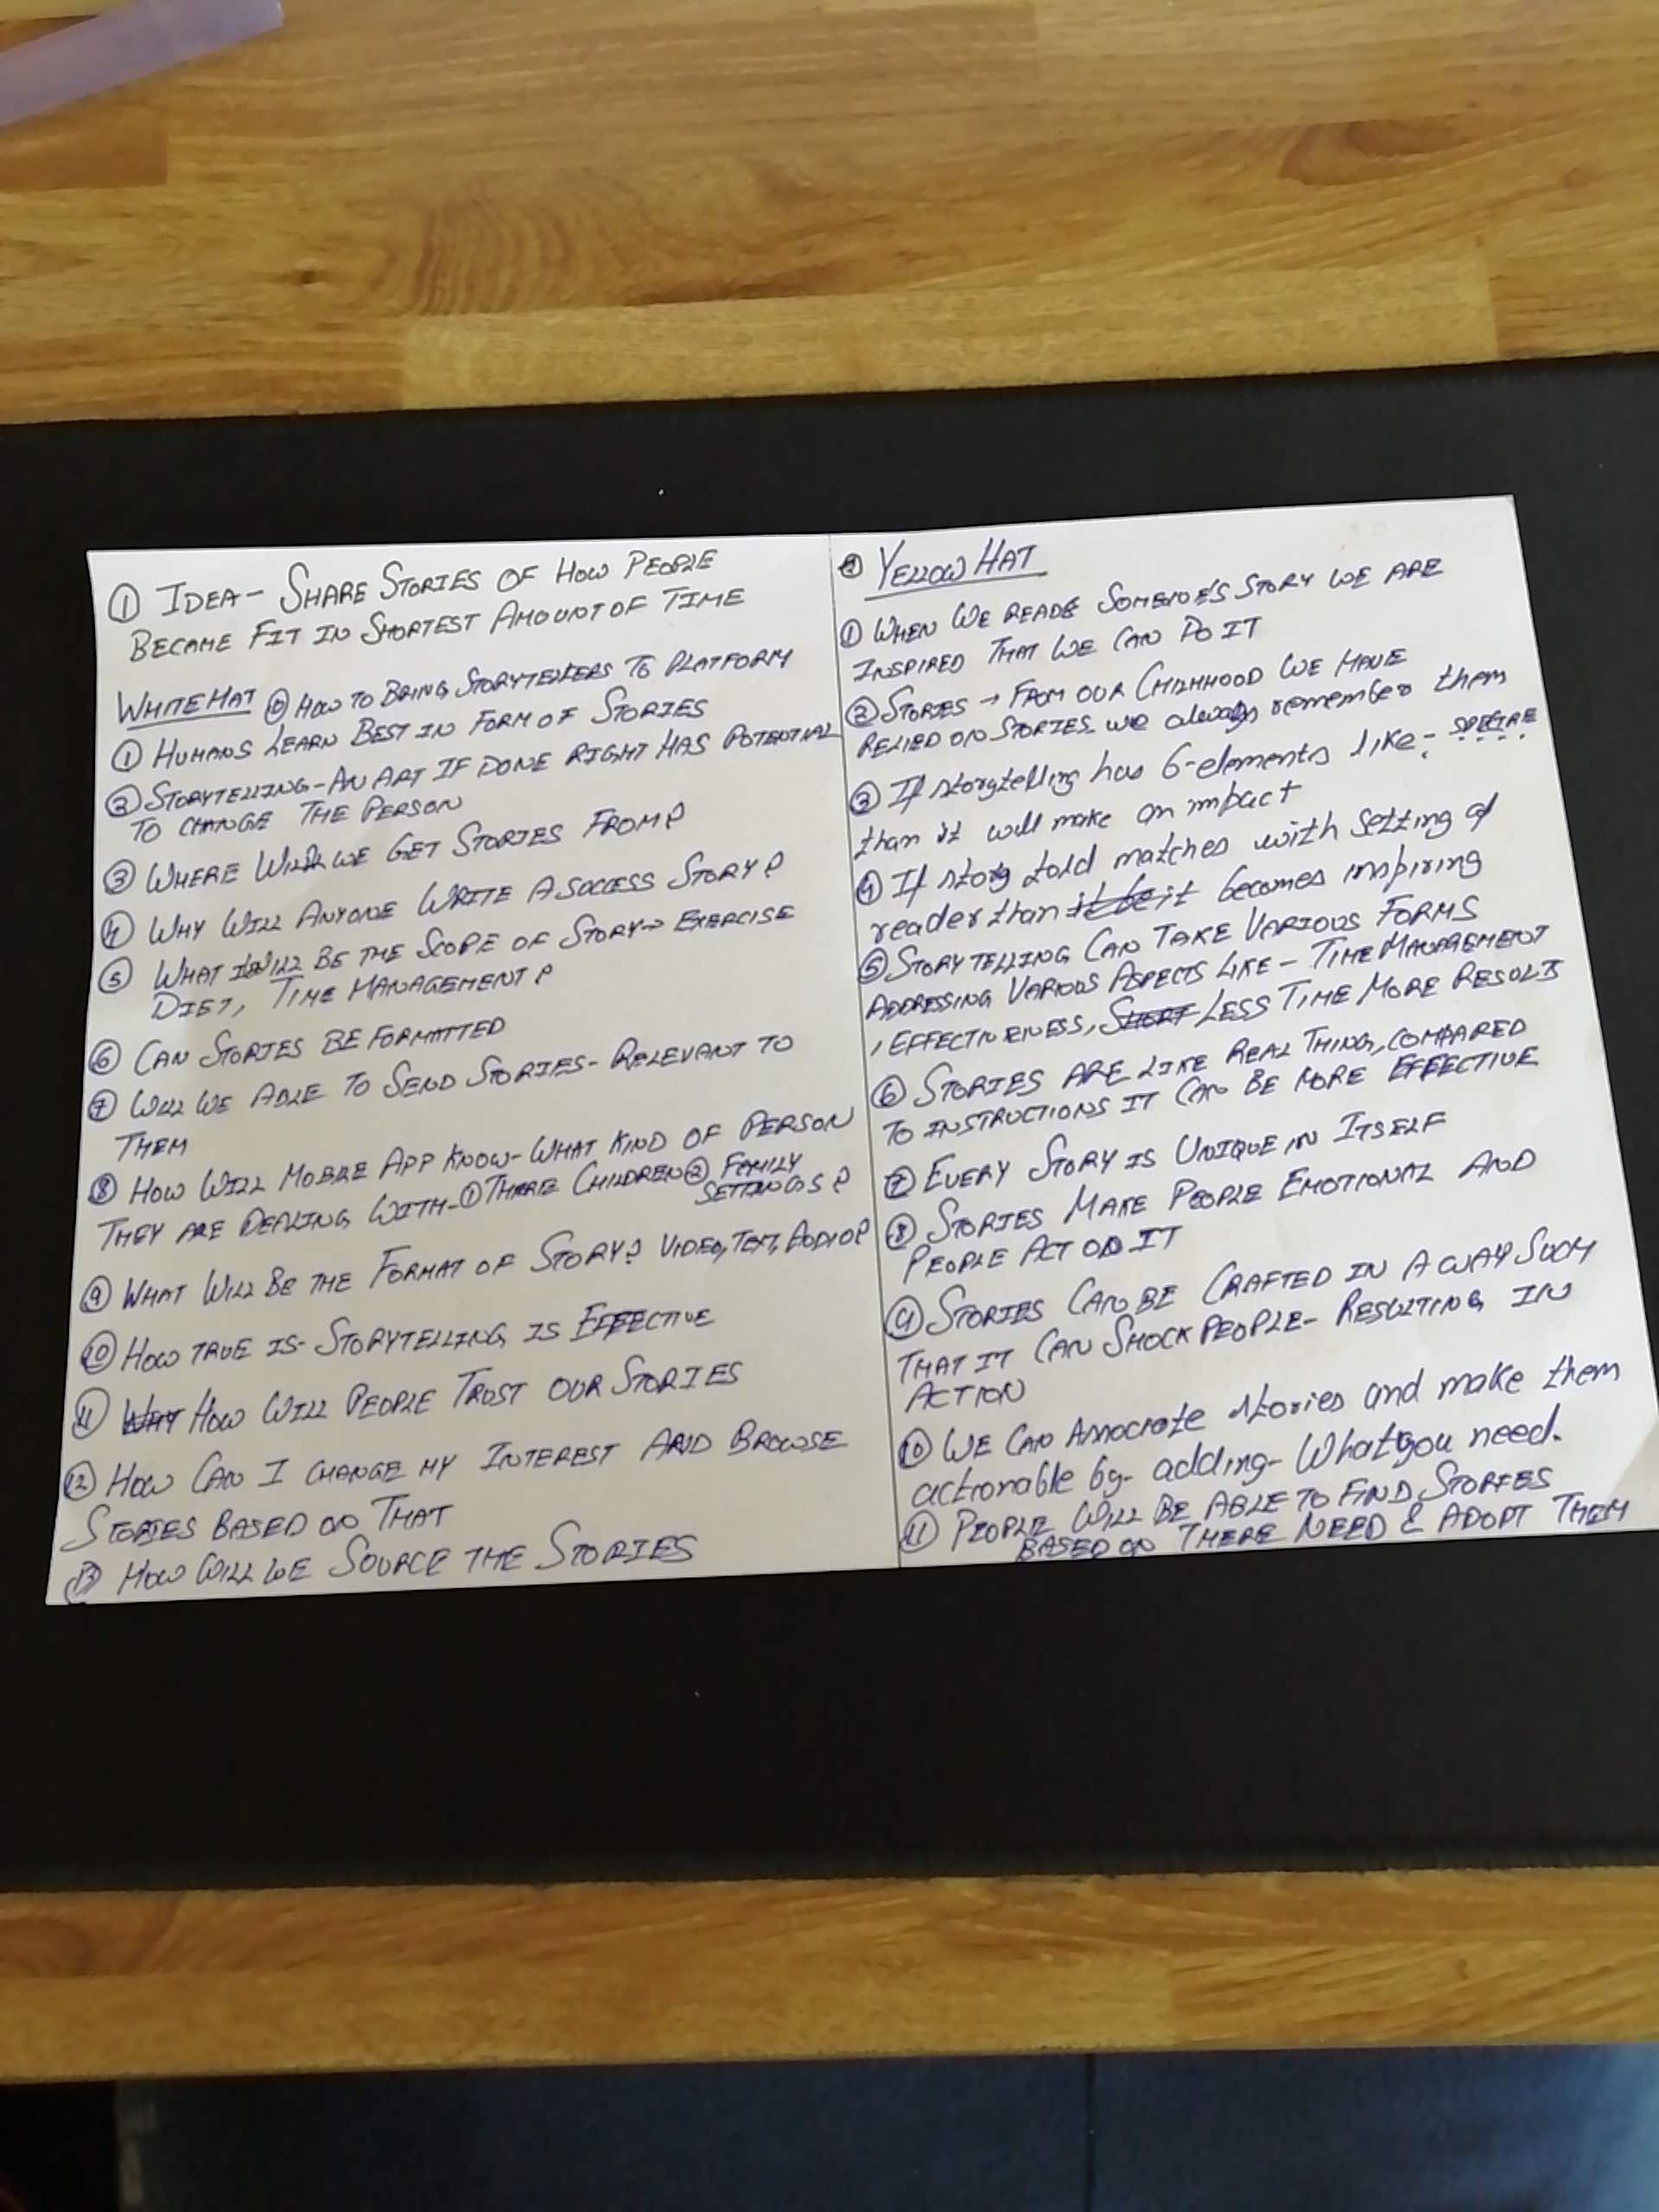 ① IDEA - SHARE STORIES OF HOW PEOPLE
BECAME FIT IN SHORTEST AMOUNT OF TIME
WHITE HAT ⓪ HOW TO BRING STORYTELLERS TO PLATFORM
① HUMANS LEARN BEST IN FORM OF STORIES
② STORYTELLING - AN ART IF DONE RIGHT HAS POTENTIAL
TO CHANGE THE PERSON
③ WHERE WILL WE GET STORIES FROM?
④ WHY WILL ANYONE WRITE A SUCCESS STORY?
⑤ WHAT WILL BE THE SCOPE OF STORY → EXERCISE
DIET, TIME MANAGEMENT?
⑥ CAN STORIES BE FORMATTED
⑦ WILL WE ABLE TO SEND STORIES - RELEVANT TO
THEM
⑧ HOW WILL MOBILE APP KNOW - WHAT KIND OF PERSON
THEY ARE DEALING WITH - ① THERE CHILDREN ② FAMILY
SETTINGS?
⑨ WHAT WILL BE THE FORMAT OF STORY? VIDEO, TEXT, AUDIO?
⑩ HOW TRUE IS - STORYTELLING IS EFFECTIVE
⑪ WHY HOW WILL PEOPLE TRUST OUR STORIES
⑫ HOW CAN I CHANGE MY INTEREST AND BROWSE
STORIES BASED ON THAT
⑬ HOW WILL WE SOURCE THE STORIES
YELLOW HAT
① WHEN WE READ SOMEONE'S STORY WE ARE
INSPIRED THAT WE CAN DO IT
② STORIES → FROM OUR CHILHHOOD WE HAVE
RELIED ON STORIES. we always remember them
③ If storytelling has 6-elements like:-
than it will make an impact
④ If story told matches with setting of
reader than it be it becomes inspiring
⑤ STORYTELLING CAN TAKE VARIOUS FORMS
ADDRESSING VARIOUS ASPECTS LIKE - TIME MANAGEMENT
, EFFECTIVENESS, SHORT LESS TIME MORE RESULTS
⑥ STORIES ARE LIKE REAL THING, COMPARED
TO INSTRUCTIONS IT CAN BE MORE EFFECTIVE
⑦ EVERY STORY IS UNIQUE IN ITSELF
⑧ STORIES MAKE PEOPLE EMOTIONAL AND
PEOPLE ACT ON IT
⑨ STORIES CAN BE CRAFTED IN A WAY SUCH
THAT IT CAN SHOCK PEOPLE - RESULTING IN
ACTION
⑩ WE CAN Associate stories and make them
actionable by - adding - What you need.
⑪ PEOPLE WILL BE ABLE TO FIND STORIES
BASED ON THERE NEED & ADOPT THEM